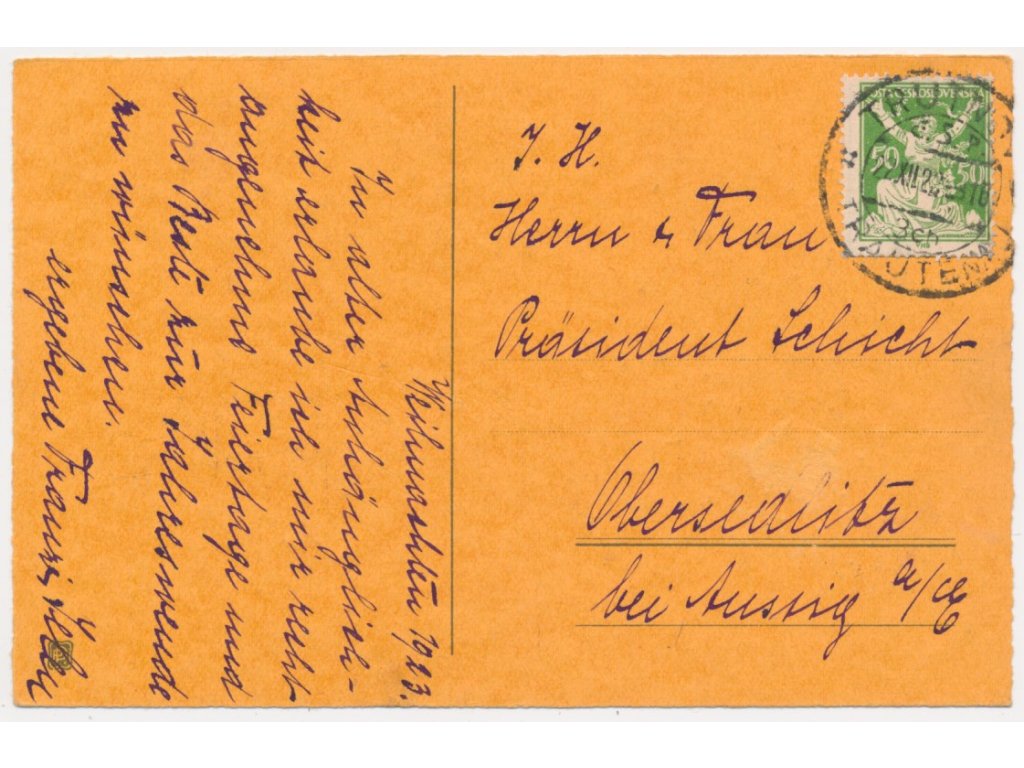 Weihnachten 1923.
In alter Anhänglich-
keit erlaube ich mir recht
angenehme Feiertage und
das Beste zur Jahreswende
zu wünschen.
ergebene Franzi
J. H.
Herrn & Frau
Präsident Schicht
Obersedlitz
bei Aussig a/E
POŠTA ČESKOSLOVENSKÁ
50 50
TRUTNOV
XII 23
3ch
TRAUTENAU